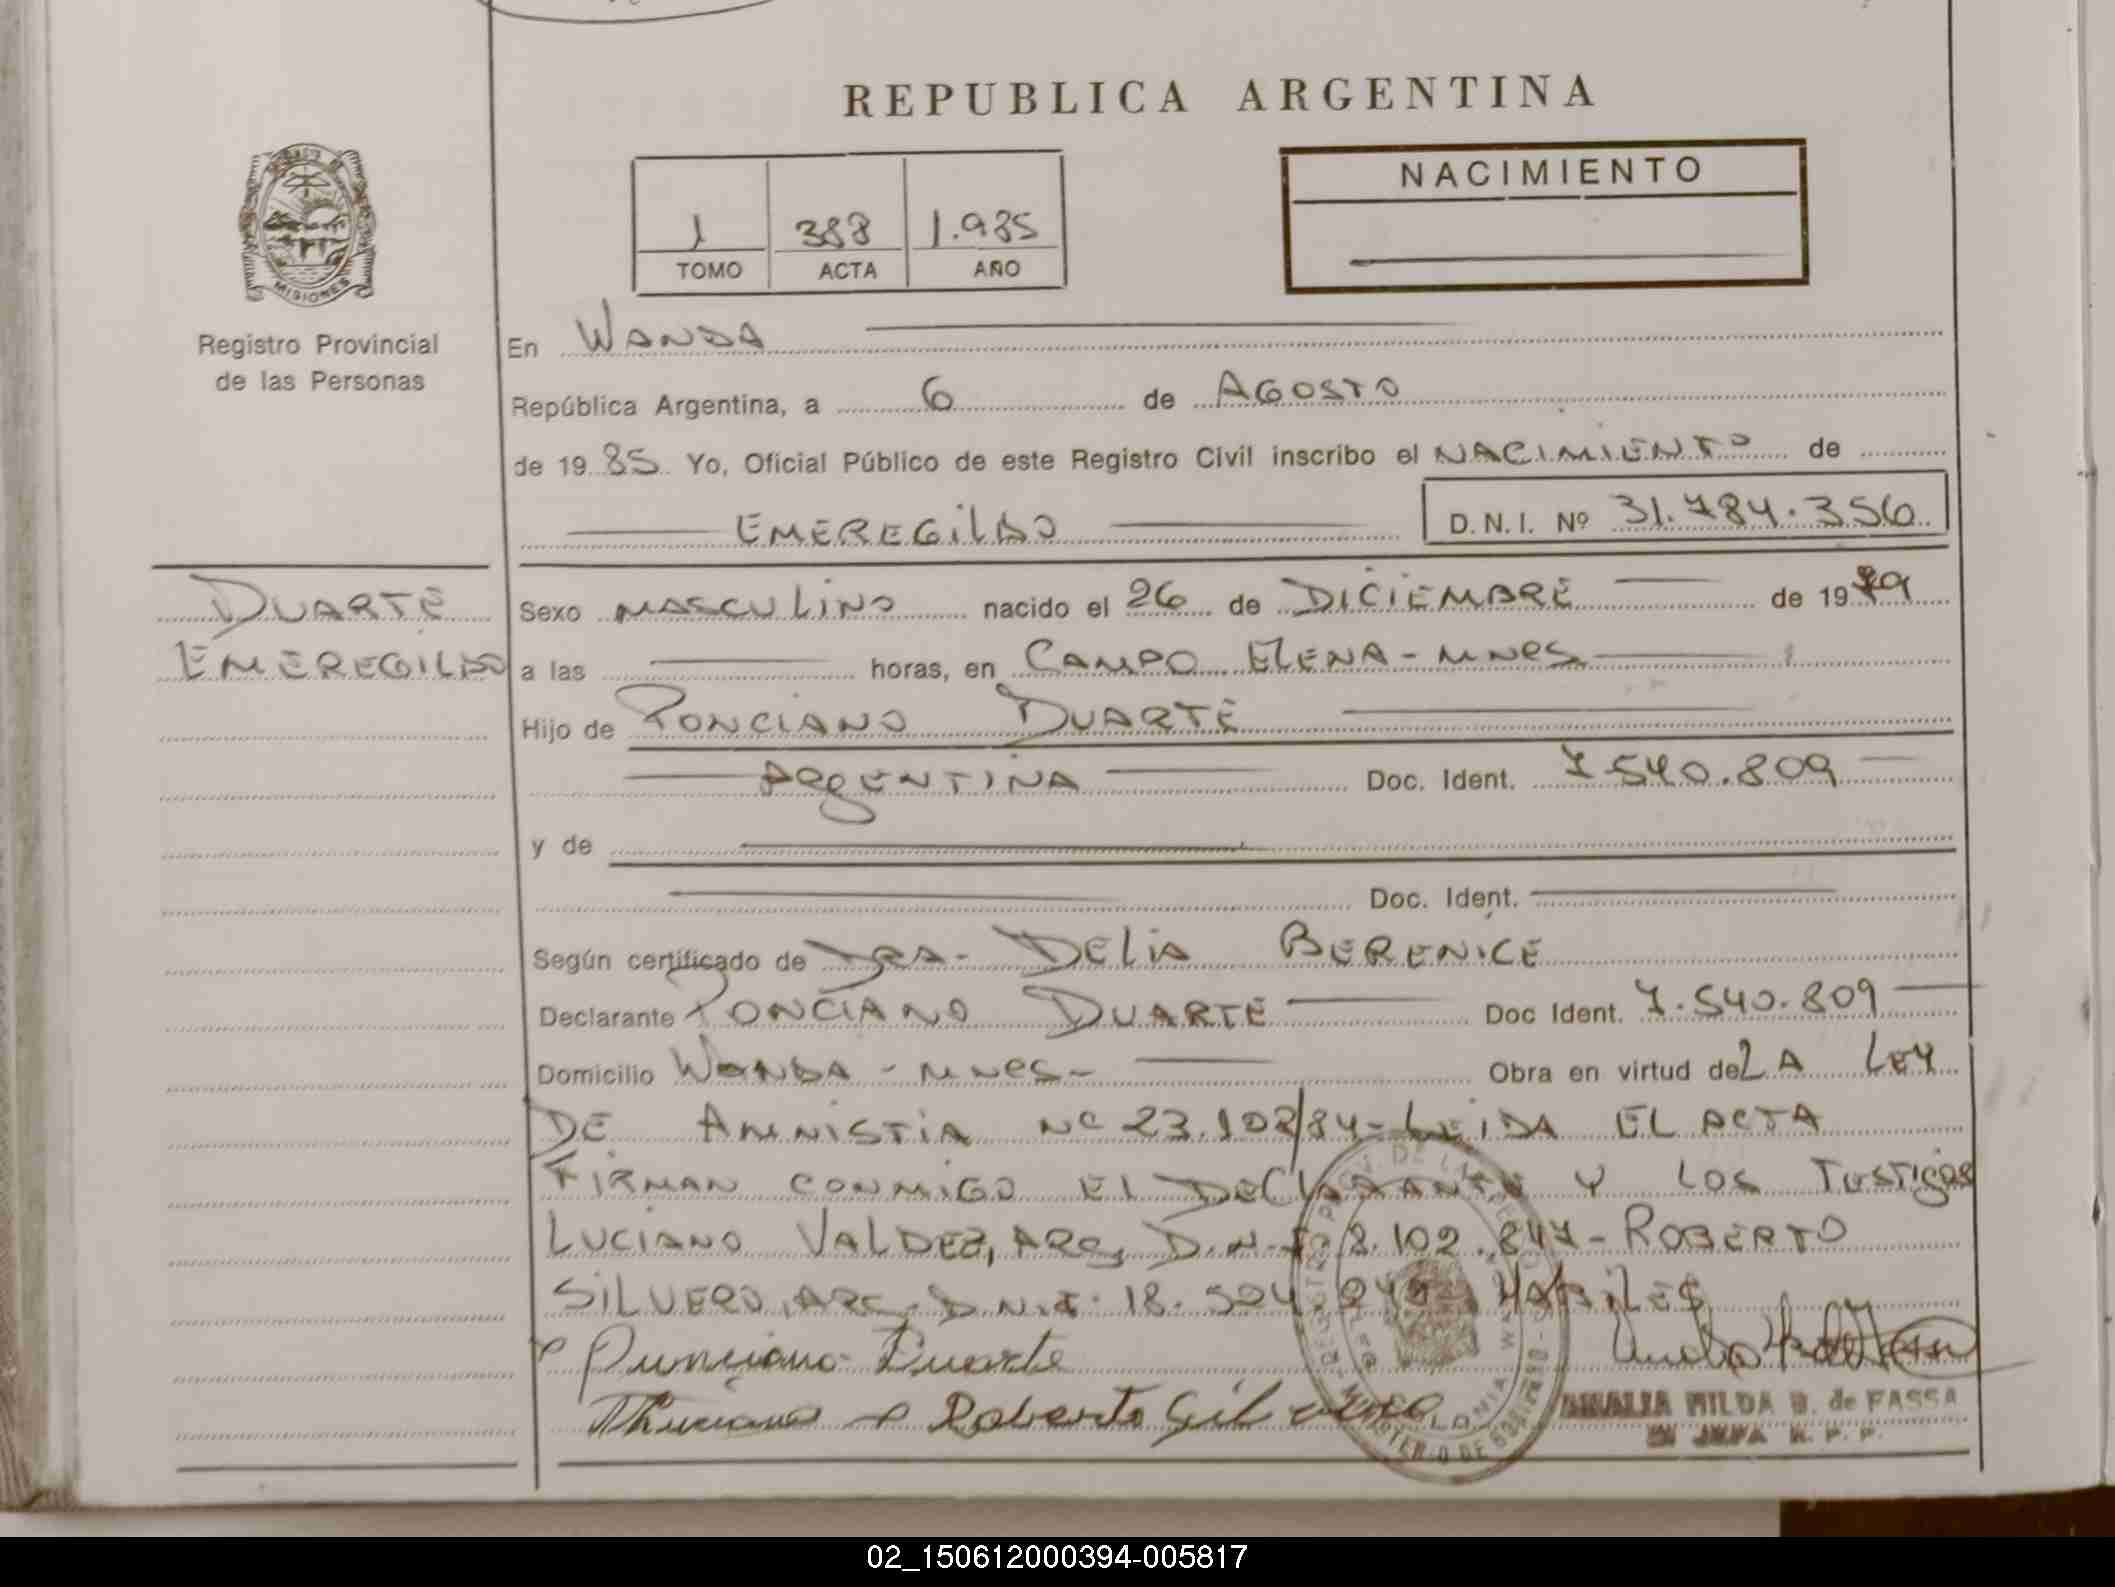 REPUBLICA ARGENTINA
NACIMIENTO
1 388 1.985
TOMO ACTA AÑO
MISIONES
Registro Provincial
de las Personas
En WANDA
República Argentina, a 6 de AGOSTO
de 19 85 Yo, Oficial Público de este Registro Civil inscribo el NACIMIENTO de
EMEREGILDO D.N.I. Nº 31.784.356
DUARTE
EMEREGILDO
Sexo MASCULINO nacido el 26 de DICIEMBRE de 19 79
a las horas, en CAMPO ELENA - MNES
Hijo de PONCIANO DUARTE
ARGENTINA Doc. Ident. 7.540.809
y de
Doc. Ident.
Según certificado de DRA- DELIA BERENICE
Declarante PONCIANO DUARTE Doc Ident. 7.540.809
Domicilio WANDA - MNES- Obra en virtud de LA LEY
DE AMNISTIA Nº 23.102/84- LEIDA EL ACTA
FIRMAN CONMIGO EL DECLARANTE Y LOS TESTIGOS
LUCIANO VALDEZ, ARG, D.N.I. 8.102.847 - ROBERTO
SILVERO, ARG. D.N.I. 18. HABILES
Punciano Duarte
Roberto Silvero
HILDA de FASSA
02_150612000394-005817